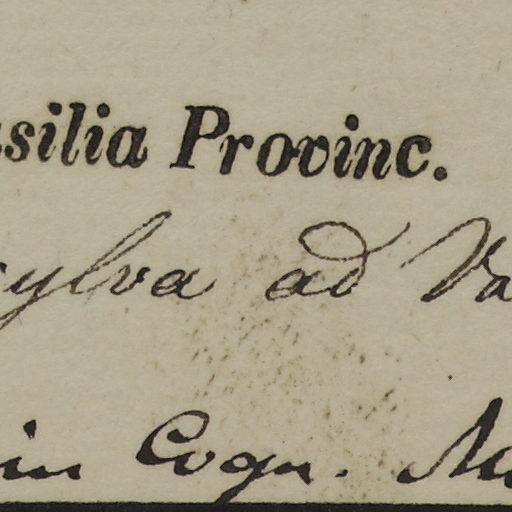 asilia Provinc.
sylva ad Va
in Cogn. Ma